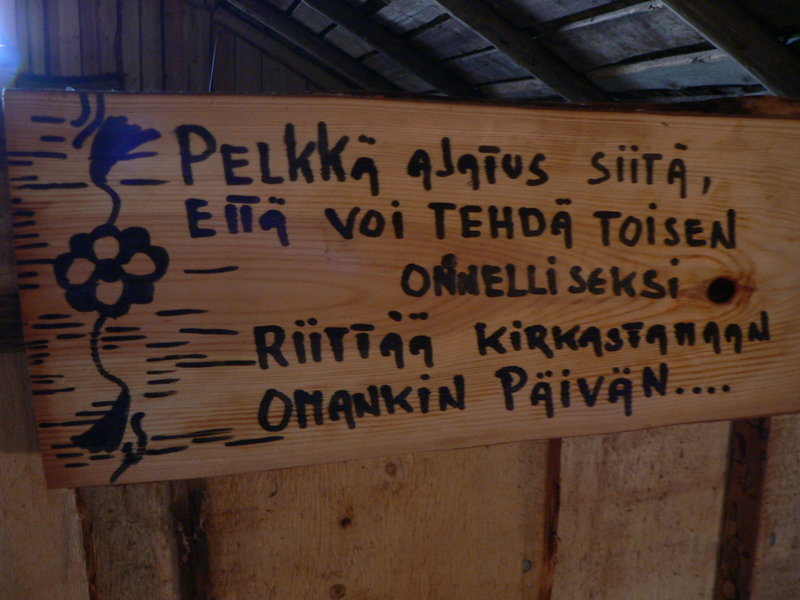 PELKKÄ AJATUS SIITÄ,
ETTÄ VOI TEHDÄ TOISEN
ONNELLISEKSI
RIITTÄÄ KIRKASTAMAAN
OMANKIN PÄIVÄN....